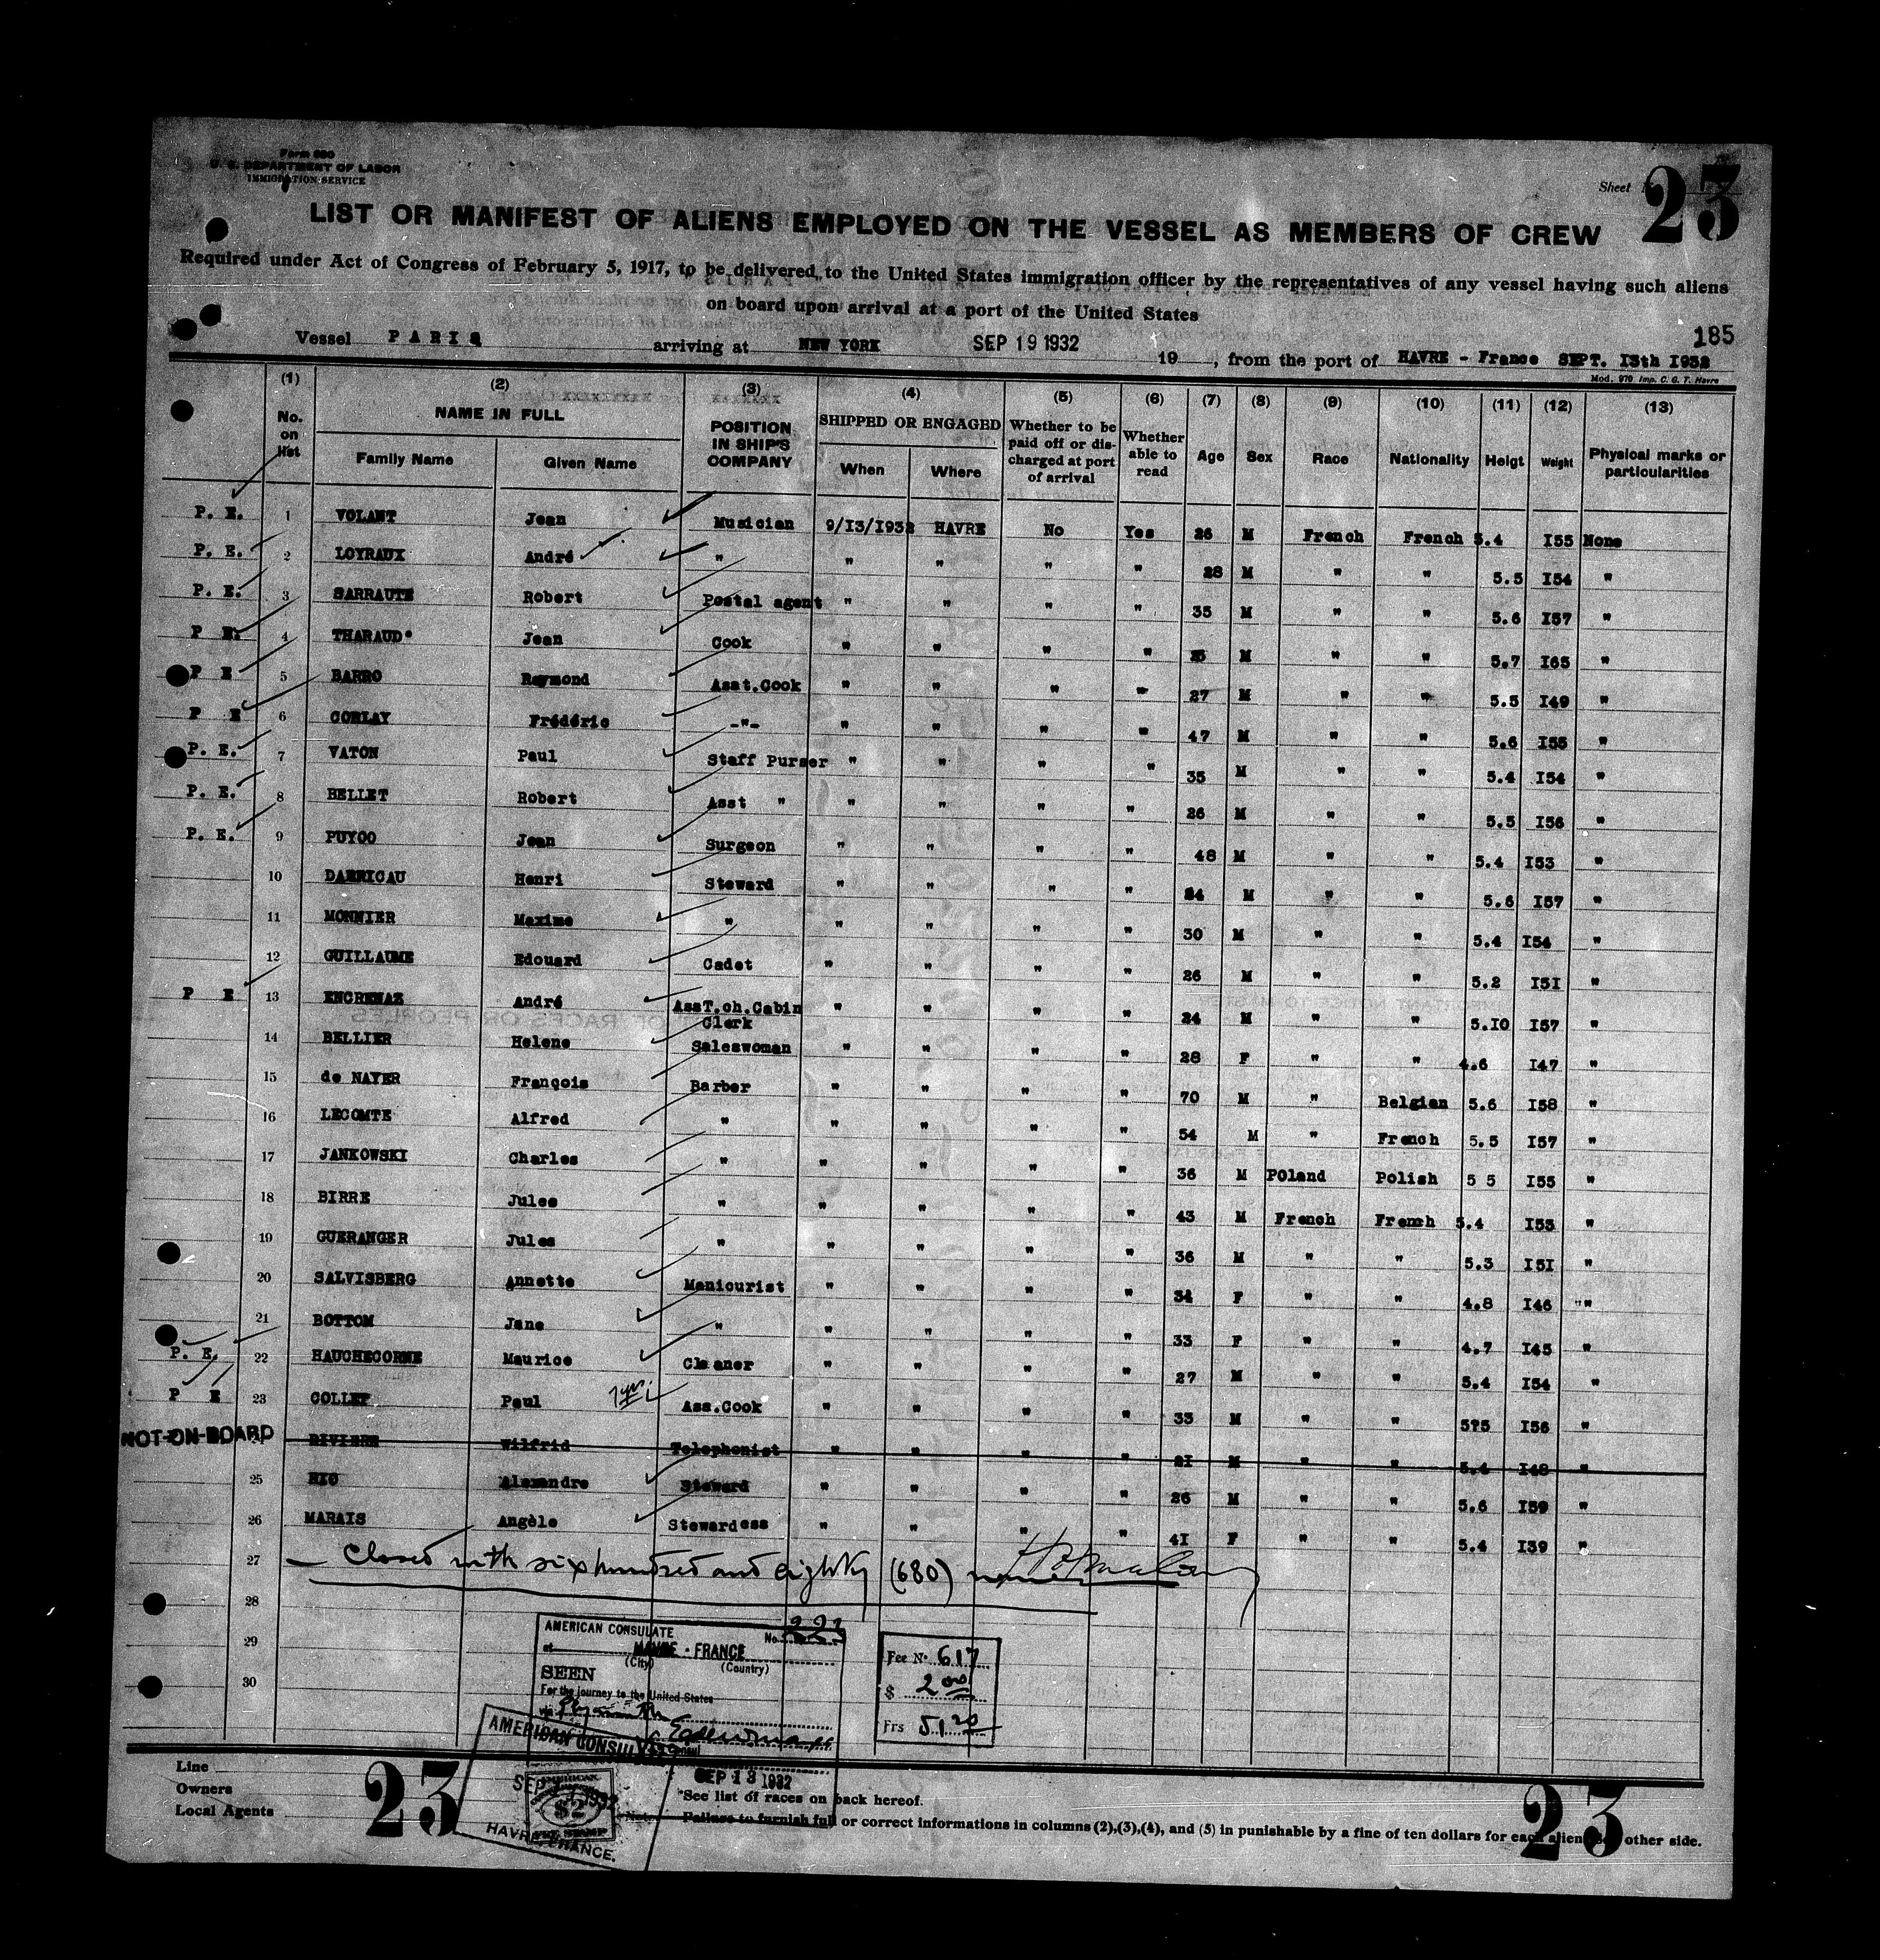 Form 680
U. S. DEPARTMENT OF LABOR
IMMIGRATION SERVICE
Sheet
23
LIST OR MANIFEST OF ALIENS EMPLOYED ON THE VESSEL AS MEMBERS OF CREW
Required under Act of Congress of February 5, 1917, to be delivered to the United States immigration officer by the representatives of any vessel having such aliens
on board upon arrival at a port of the United States
185
Vessel PARIS arriving at NEW YORK SEP 19 1932 19 , from the port of HAVRE - France SEPT. I3th I932
Mod. 970 Imp. C. G. T. Havre
(1) (2) (3) (4) (5) (6) (7) (8) (9) (10) (11) (12) (13)
No. on list NAME IN FULL Family Name Given Name POSITION IN SHIP'S COMPANY SHIPPED OR ENGAGED When Where Whether to be paid off or discharged at port of arrival Whether able to read Age Sex Race Nationality Heigt Weight Physical marks or particularities
P. E. 1 VOLANT Jean Musician 9/I3/I932 HAVRE No Yes 26 M French French 5.4 I55 None
P. E. 2 LOYRAUX André " " " " " 28 M " " 5.5 I54 "
P. E. 3 SARRAUTE Robert Postal agent " " " " 35 M " " 5.6 I57 "
P E. 4 THARAUD Jean Cook " " " " M " " 5.7 I65 "
P E 5 BARRO Raymond Asst.Cook " " " " 27 M " " 5.5 I49 "
P E 6 CORLAY Frédéric -"- " " " " 47 M " " 5.6 I55 "
P. E. 7 VATON Paul Staff Purser " " " " 35 M " " 5.4 I54 "
P. E. 8 BELLET Robert Asst " " " " " 26 M " " 5.5 I56 "
P. E. 9 PUYOO Jean Surgeon " " " " 48 M " " 5.4 I53 "
10 DARRICAU Henri Steward " " " " 24 M " " 5.6 I57 "
11 MONNIER Maxime " " " " " 30 M " " 5.4 I54 "
12 GUILLAUME Edouard Cadet " " " " 26 M " " 5.2 I5I "
P E 13 ENCRENAZ André AssT.ch.Cabin Clerk " " " " 24 M " " 5.I0 I57 "
14 BELLIER Helene Saleswoman " " " " 28 F " " 4.6 I47 "
15 de NAYER François Barber " " " " 70 M " Belgian 5.6 I58 "
16 LECOMTE Alfred " " " " " 54 M " French 5.5 I57 "
17 JANKOWSKI Charles " " " " " 36 M POland Polish 5 5 I55 "
18 BIRRE Jules " " " " " 43 M French French 5.4 I53 "
19 GUERANGER Jules " " " " " 36 M " " 5.3 I5I "
20 SALVISBERG Annette Manicurist " " " " 34 F " " 4.8 I46 "
21 BOTTOM Jane " " " " " 33 F " " 4.7 I45 "
P. E. 22 HAUCHECORNE Maurice Cleaner " " " " 27 M " " 5.4 I54 "
P E 23 COLLET Paul Ass.Cook " " " " 33 M " " 5?5 I56 "
NOT-ON-BOARD RIVIERE Wilfrid Telephonist " " " " 2I M " " 5.4 I48 "
25 RIO Alexandre Steward " " " " 26 M " " 5.6 I59 "
26 MARAIS Angèle Stewardess " " " " 4I F " " 5.4 I39 "
27 — Closed with six hundred and eighty (680) names
28
29
30
AMERICAN CONSULATE No. 223
at HAVRE - FRANCE
(City) (Country)
SEEN
For the journey to the United States
via Plymouth
SEP 13 1932
Fee No. 617
$ 2.00
Frs 51.20
AMERICAN CONSUL
SEP 1932
AMERICAN
$2
HAVRE, FRANCE.
Line
Owners
Local Agents
23
23
*See list of races on back hereof.
Note Failure to furnish full or correct informations in columns (2),(3),(4), and (5) in punishable by a fine of ten dollars for each alien other side.